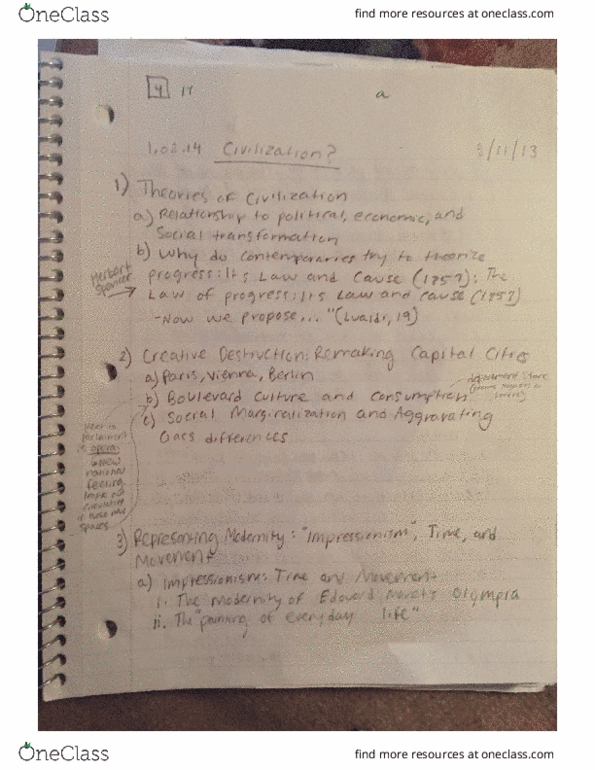 OneClass
find more resources at oneclass.com
4 17
a
1.02.14 Civilization?
/11/13
1) Theories of Civilization
a) Relationship to political, economic, and
Social transformation
b) Why do contemporaries try to theorize
Herbert
Spencer
progress: Its Law and Cause (1857): The
Law of progress: Its Law and cause (1857)
-Now we propose... "(Lualdi, 19)
2) Creative Destruction: Remaking Capital Cities
a) Paris, Vienna, Berlin
department store
b) Boulevard Culture and Consumption
c) Social Marginalization and Aggravating
Class differences
parliament
opera
new
national
feeling
spaces
3) Representing Modernity: "Impressionism", Time, and
Movement
a) Impressionism: Time and Movement
i. The modernity of Edouard Manet's Olympia
ii. The "painting of everyday life"
OneClass
find more resources at oneclass.com